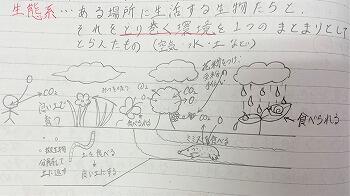 生態系…ある場所に生活する生物たちと、
それをとり巻く環境を1つのまとまりとして
とらえたもの (空気・水・土など)
CO₂
CO₂
O
良い土で
育つ
食べられる
CO₂
O
CO₂
食べられる
ミミズを食べる
土を食べる
→良い土にする
微生物
分解して
土に返す